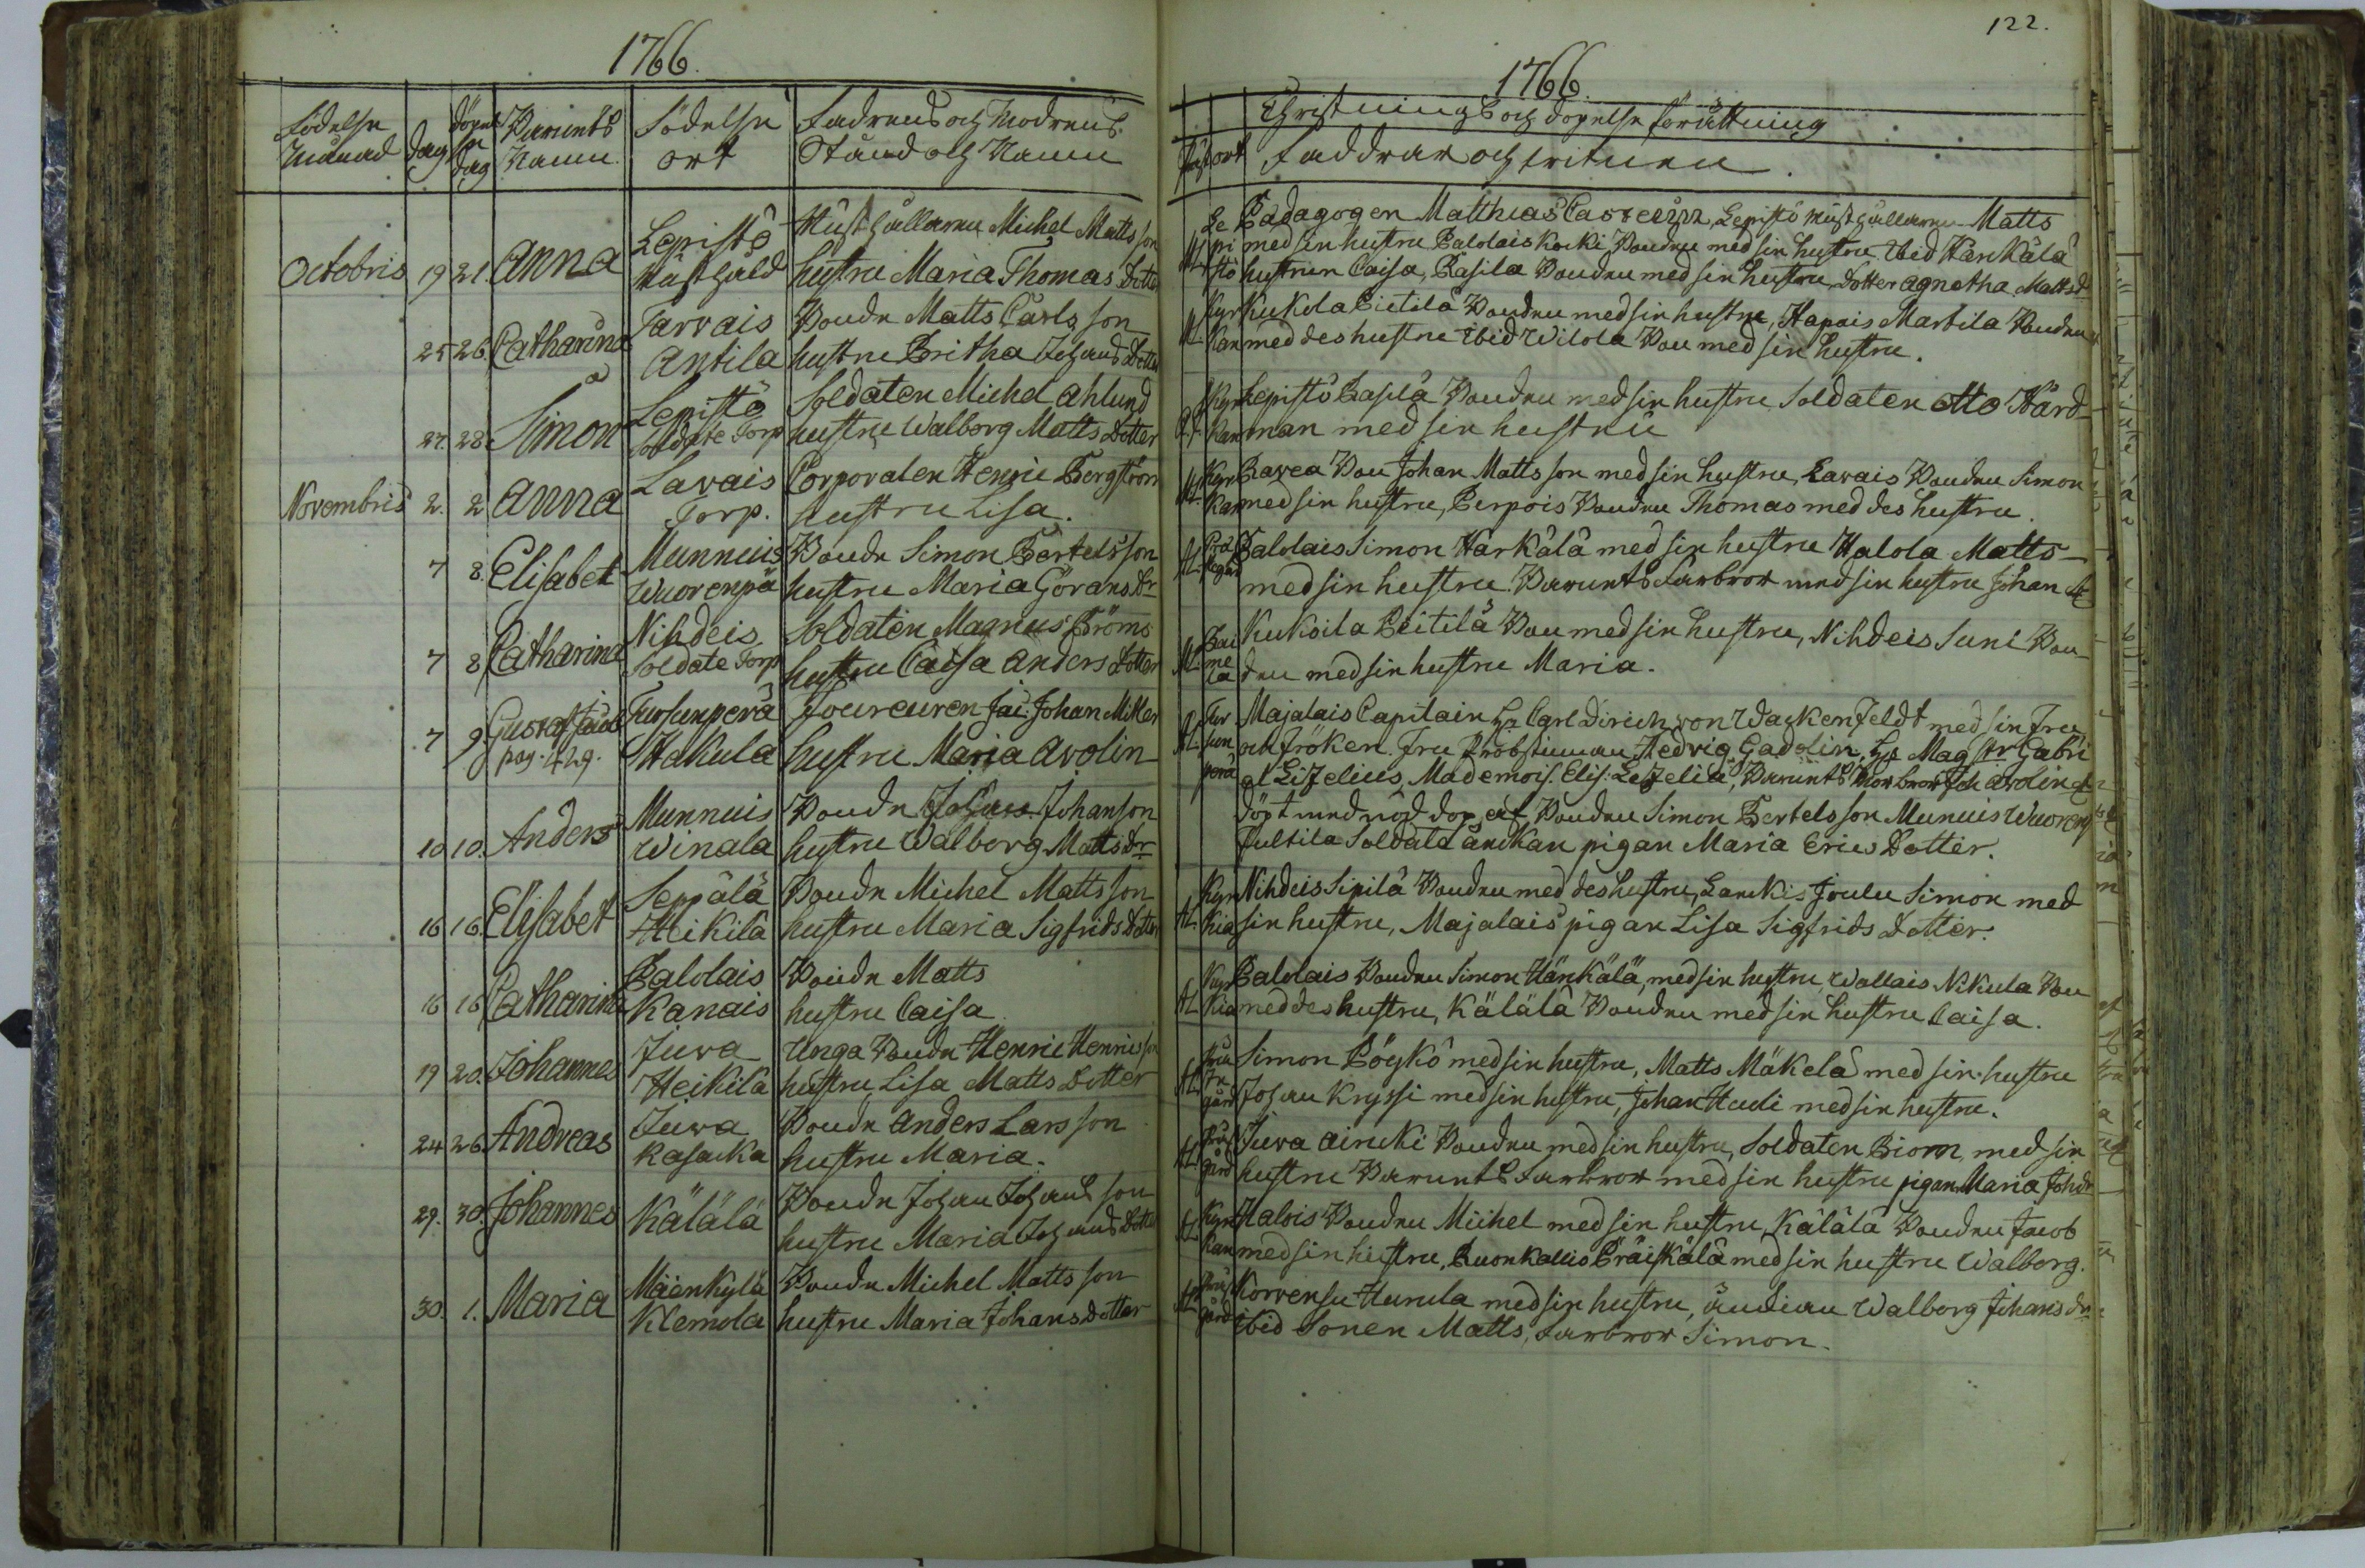 1766.
Födelse Månad
dag
döpelse dag
Barnets Namn
Födelse ort
Fadrens och Modrens Stånd och Namn
Octobris 19 21. Anna
Lepistö
hållaren Michel Mattsson
hustru Maria Thomas Dotter
25 26. Catharina
Tarvais Antila
Bonde Matts Carlsson
hustru Britha Johans Dotter
27. 28. Simon
Lepistö Soldate Torp
Soldaten Michel Ahlund
hustru Walborg Matts Dotter
Novembris 2. 2 Anna
Lavais Torp.
Corporalen Henric Bergström
hustru Lisa.
7 8. Elisabet
Munnuis Wuorenpä
Bonde Simon Bertelsson
hustru Maria Görans Dr
7 8 Catharina
Nihdeis Soldate Torp
Soldaten Magnus Bröms
hustru Caisa Anders Dotter
7 9. Gustaf
pag. 429.
Tursunperä Hakula
Foureuren Jac: Johan Miller
hustru Maria Avolin
10 10. Anders
Munnuis Winala
Bonde Johan Johanson
hustru Walborg Matts Dr
16 16. Elisabet
Seppälä Heikilä
Bonde Michel Mattsson
hustru Maria Sigfrids Dotter
16 16 Catharina
Palolais Kanais
Bonde Matts
hustru Caisa
19 20. Johannes
Juva Heikilä
Unga Bonde Henric Henricsson
hustru Lisa Matts Dotter
24 26 Andreas
Juva Kasacka
Bonde Anders Larsson
hustru Maria.
29. 30. Johannes
Kälälä
Bonde Johan Johansson
hustru Maria Johans Dotter
30. 1. Maria
Mäenkylä Klemola
Bonde Michel Mattsson
hustru Maria Johans dotter
122.
1766.
Christnings och döpelse förättning
ort
Faddrar och vitnen.
Lepistö
Pædagogen Matthias Lepistö Matts
med sin hustru Palolais Koski Bonden med sin hustru Ibid Hänkälä
hustrun Caisa, Pasila Bonden med sin hustru, Dotter Agnetha Mattsdr
Kyrkan
Kukola Pietilä Bonden med sin hustru, Hapais Martila Bonden
med des hustru Ibid Wilola Bon med sin hustru.
Kyrkan
Lepistö Pasila Bonden med sin hustru Soldaten Otto Hård
man med sin hustru
Kyrkan
Pavea Bon Johan Mattsson med sin hustru, Lavais Bonden Simon
med sin hustru, Perpois Bonden Thomas med des hustru.
Palolais Simon Härkälä med sin hustru Halola Matts
med sin hustru. Barnets Farbror med sin hustru Johan
Kukoila Peitilä Bon med sin hustru, Nihdeis Suni Bon
den med sin hustru Maria.
Tursunperä
Majalais Capitain Hr Carl Dirich von Wackenfeldt med sin Fru
och fröken. Fru Probstinnan Hedvig Gadolin, Hr Magstr Gabri
el Lizelius, Mademois. Elis: Lizelia, Barnets Morbror Joh Avolin
döpt med nöd dop af Bonden Simon Bertelsson Munnuis Wuorenp
Pultila Soldate änckan pigan Maria Erics Dotter.
Kyrkia
Nihdeis Sipilä Bonden med des hustru, Lanckis Joulu Simon med
sin hustru, Majalais pigan Lisa Sigfrids Dotter.
Kyrkia
Palolais Bonden Simon Hänkälä, med sin hustru, Wallais Nikula Bon
med des hustru, Kälälä Bonden med sin hustru Caisa.
Simon Pöykö med sin hustru, Matts Mäkelä med sin hustru
Johan Kryssi med sin hustru, Johan Heudi med sin hustru.
Juva Aincki Bonden med sin hustru, Soldaten Biorn med sin
hustru Barnets Farbror med sin hustru pigan Maria Johdr
Kyrkan
Halois Bonden Michel med sin hustru, Kälälä Bonden Jacob
med sin hustru, Ruonkallis Präiskälä med sin hustru Walborg.
Korvensu Hurula med sin hustru, änckian Walborg Johans dr
Ibid Sonen Matts, Farbror Simon.